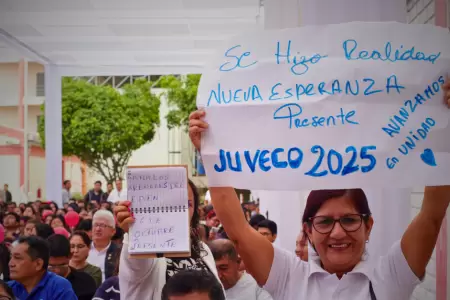 Se Hizo Realidad
NUEVA ESPERANZA
Presente
JUVECO 2025
AVANZAMOS
EN UNIDAD
PRESENTE